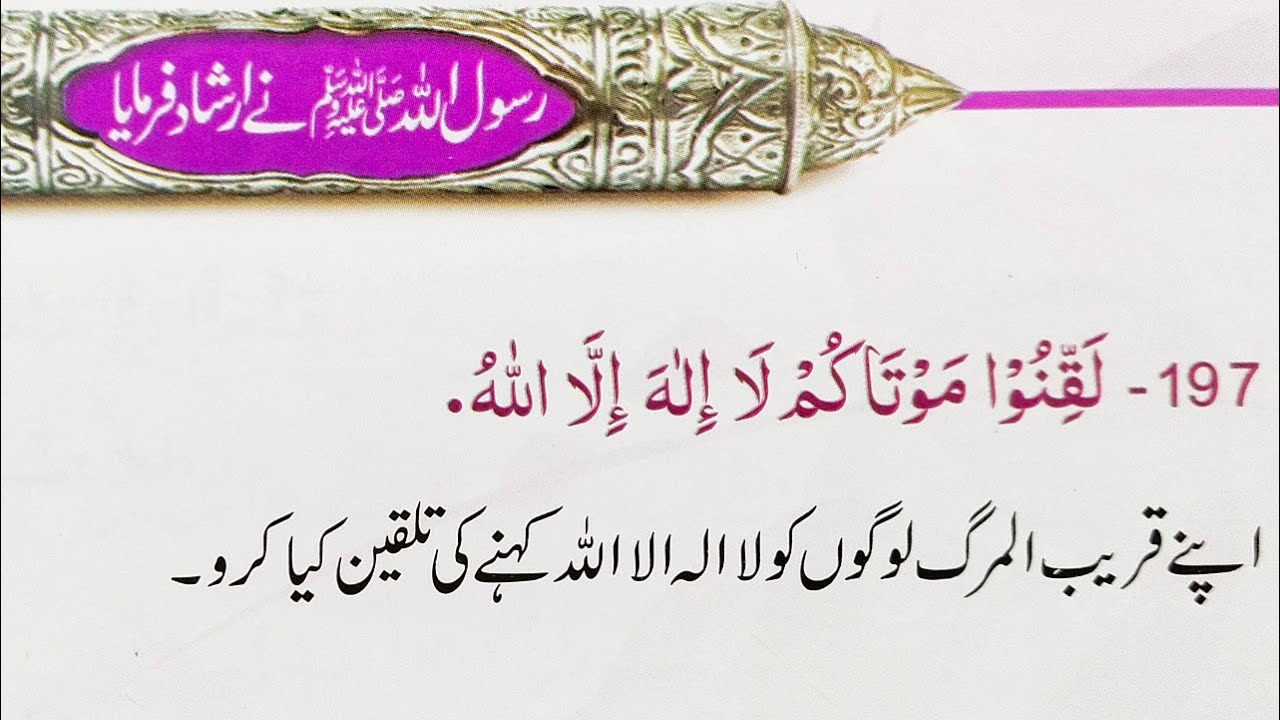 رسول اللہ ﷺ نے ارشاد فرمایا
197- لَقِّنُوْا مَوْتَاكُمْ لَا إِلٰهَ إِلَّا اللّٰهُ.
اپنے قریب المرگ لوگوں کو لا الہ الا اللہ کہنے کی تلقین کیا کرو۔